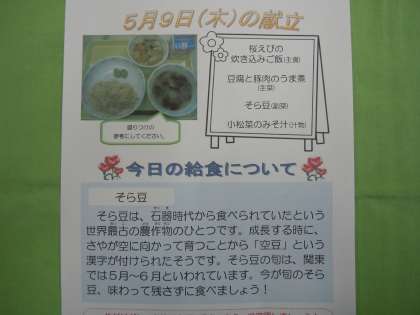 5月9日(木)の献立
桜えびの
炊き込みご飯(主食)
豆腐と豚肉のうま煮
(主菜)
そら豆(副菜)
小松菜のみそ汁(汁物)
盛りつけの
参考にしてください。
今日の給食について
そら豆
そら豆は、石器時代から食べられていたという
世界最古の農作物のひとつです。成長する時に、
さやが空に向かって育つことから「空豆」という
漢字が付けられたそうです。そら豆の旬は、関東
では5月~6月といわれています。今が旬のそら
豆、味わって残さずに食べましょう!